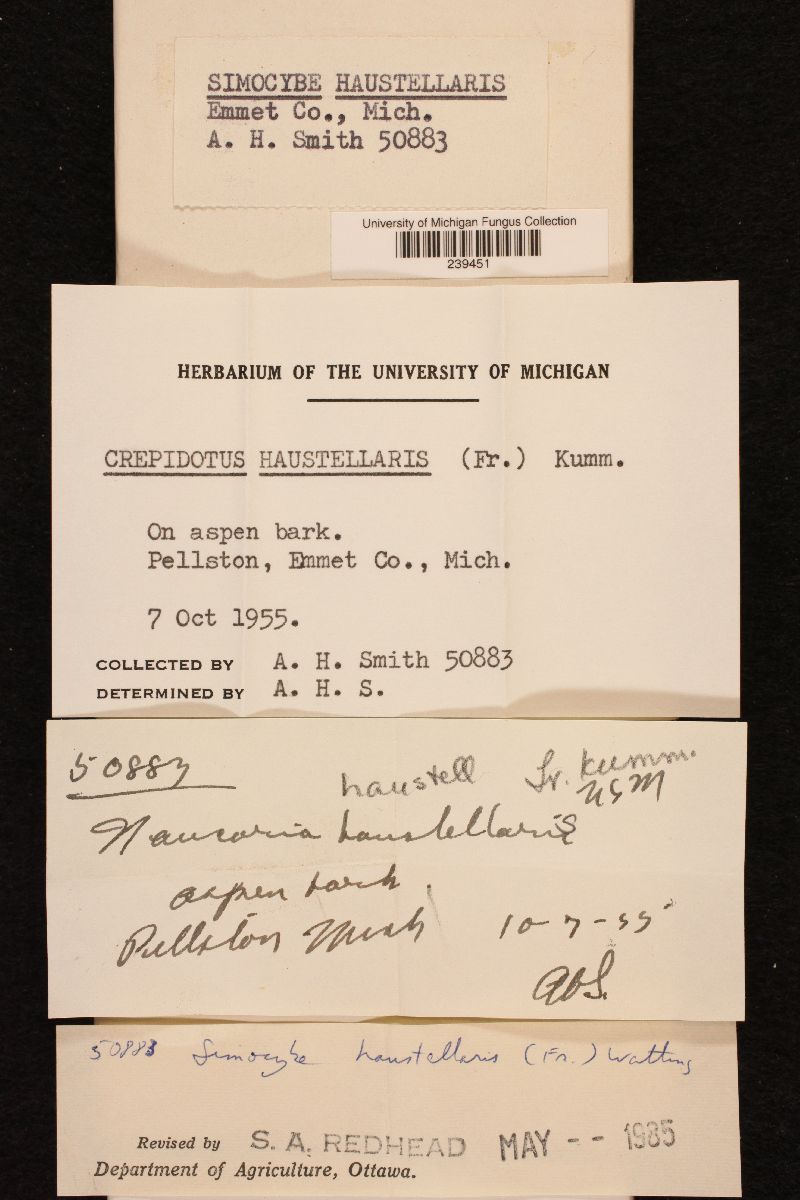 SIMOCYBE HAUSTELLARIS
Emmet Co., Mich.
A. H. Smith 50883
University of Michigan Fungus Collection
239451
HERBARIUM OF THE UNIVERSITY OF MICHIGAN
CREPIDOTUS HAUSTELLARIS (Fr.) Kumm.
On aspen bark.
Pellston, Emmet Co., Mich.
7 Oct 1955.
COLLECTED BY A. H. Smith 50883
DETERMINED BY A. H. S.
50883 haustell Fr. Kumm.
Naucoria haustellaris
aspen bark
Pellston Mich 10-7-55
AHS.
50883 Simocybe haustellaris (Fr.) Watling
Revised by S. A. REDHEAD MAY -- 1985
Department of Agriculture, Ottawa.